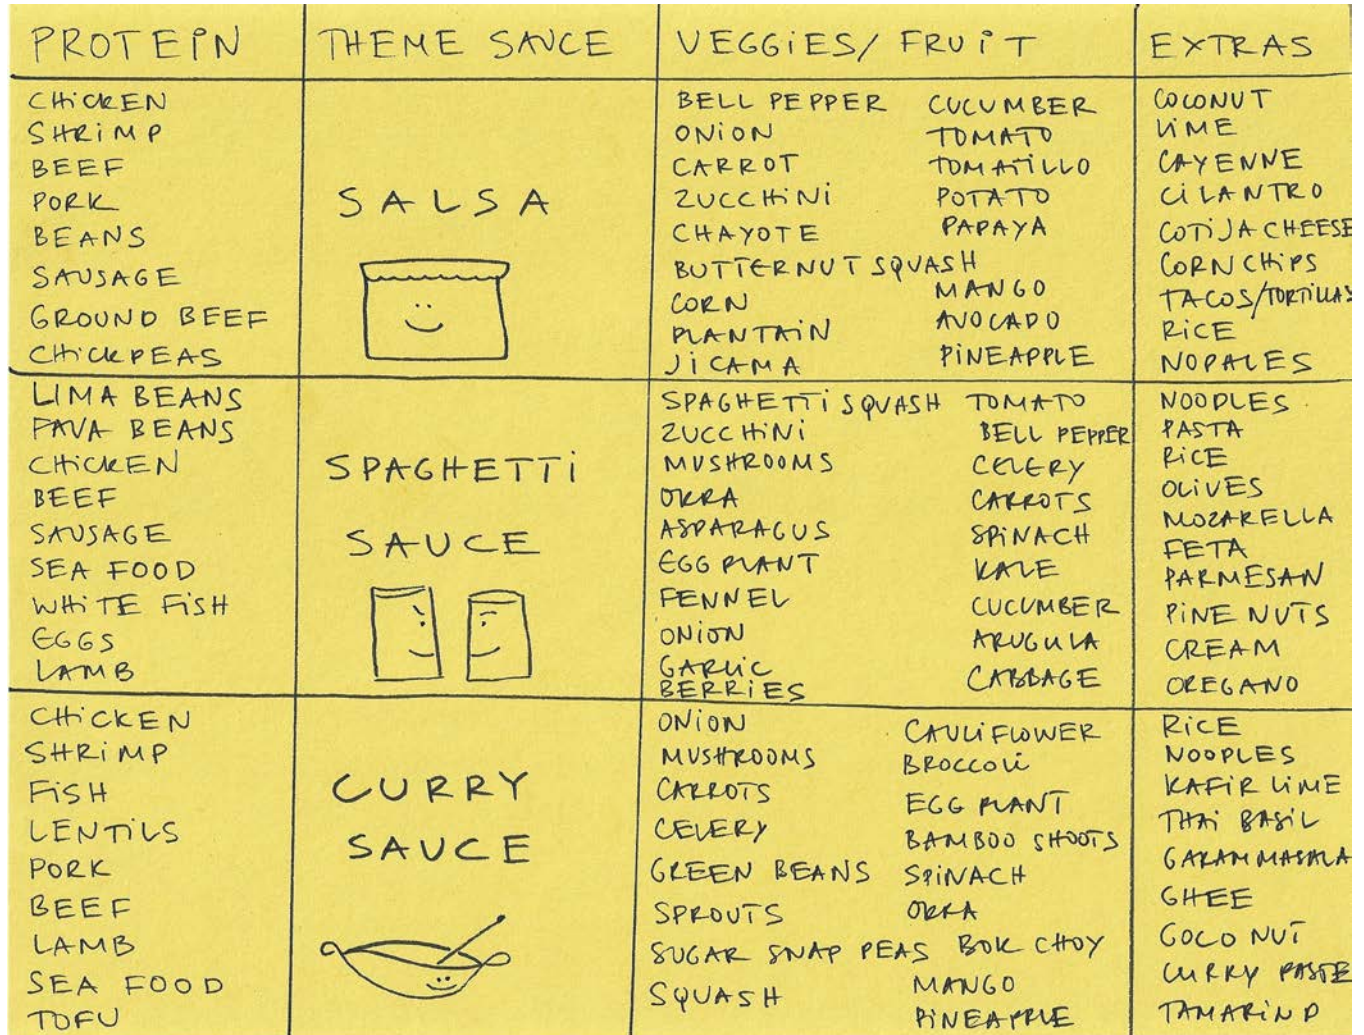 PROTEIN
THEME SAUCE
VEGGIES/ FRUIT
EXTRAS
CHICKEN
SHRIMP
BEEF
PORK
BEANS
SAUSAGE
GROUND BEEF
CHICKPEAS
SALSA
BELL PEPPER
ONION
CARROT
ZUCCHINI
CHAYOTE
BUTTERNUT SQUASH
CORN
PLANTAIN
JICAMA
CUCUMBER
TOMATO
TOMATILLO
POTATO
PAPAYA
MANGO
AVOCADO
PINEAPPLE
COCONUT
LIME
CAYENNE
CILANTRO
COTIJA CHEESE
CORN CHIPS
TACOS/TORTILLAS
RICE
NOPALES
LIMA BEANS
FAVA BEANS
CHICKEN
BEEF
SAUSAGE
SEA FOOD
WHITE FISH
EGGS
LAMB
SPAGHETTI
SAUCE
SPAGHETTI SQUASH
ZUCCHINI
MUSHROOMS
OKRA
ASPARAGUS
EGG PLANT
FENNEL
ONION
GARLIC
BERRIES
TOMATO
BELL PEPPER
CELERY
CARROTS
SPINACH
KALE
CUCUMBER
ARUGULA
CABBAGE
NOODLES
PASTA
RICE
OLIVES
MOZARELLA
FETA
PARMESAN
PINE NUTS
CREAM
OREGANO
CHICKEN
SHRIMP
FISH
LENTILS
PORK
BEEF
LAMB
SEA FOOD
TOFU
CURRY
SAUCE
ONION
MUSHROOMS
CARROTS
CELERY
GREEN BEANS
SPROUTS
SUGAR SNAP PEAS
SQUASH
CAULIFLOWER
BROCCOLI
EGG PLANT
BAMBOO SHOOTS
SPINACH
OKRA
BOK CHOY
MANGO
PINEAPPLE
RICE
NOODLES
KAFIR LIME
THAI BASIL
GARAM MASALA
GHEE
COCO NUT
CURRY PASTE
TAMARIND